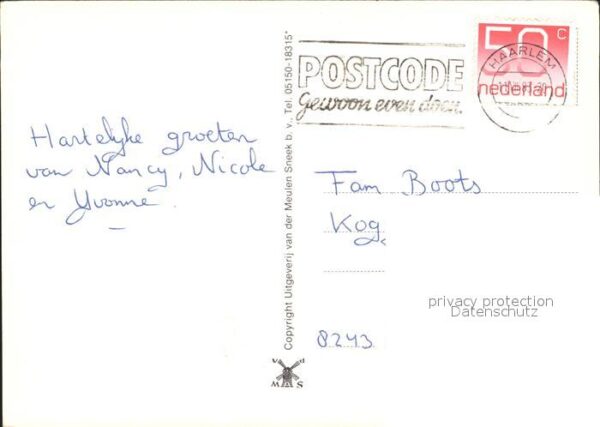 Hartelyke groeten
van Nancy, Nicole
en Yvonne.
Copyright Uitgeverij van der Meulen Sneek b.v., Tel. 05150-18315*
v d
M S
POSTCODE
Gewoon even doen.
HAARLEM
50 c
nederland
Fam Boots
Kog
privacy protection
Datenschutz
8243